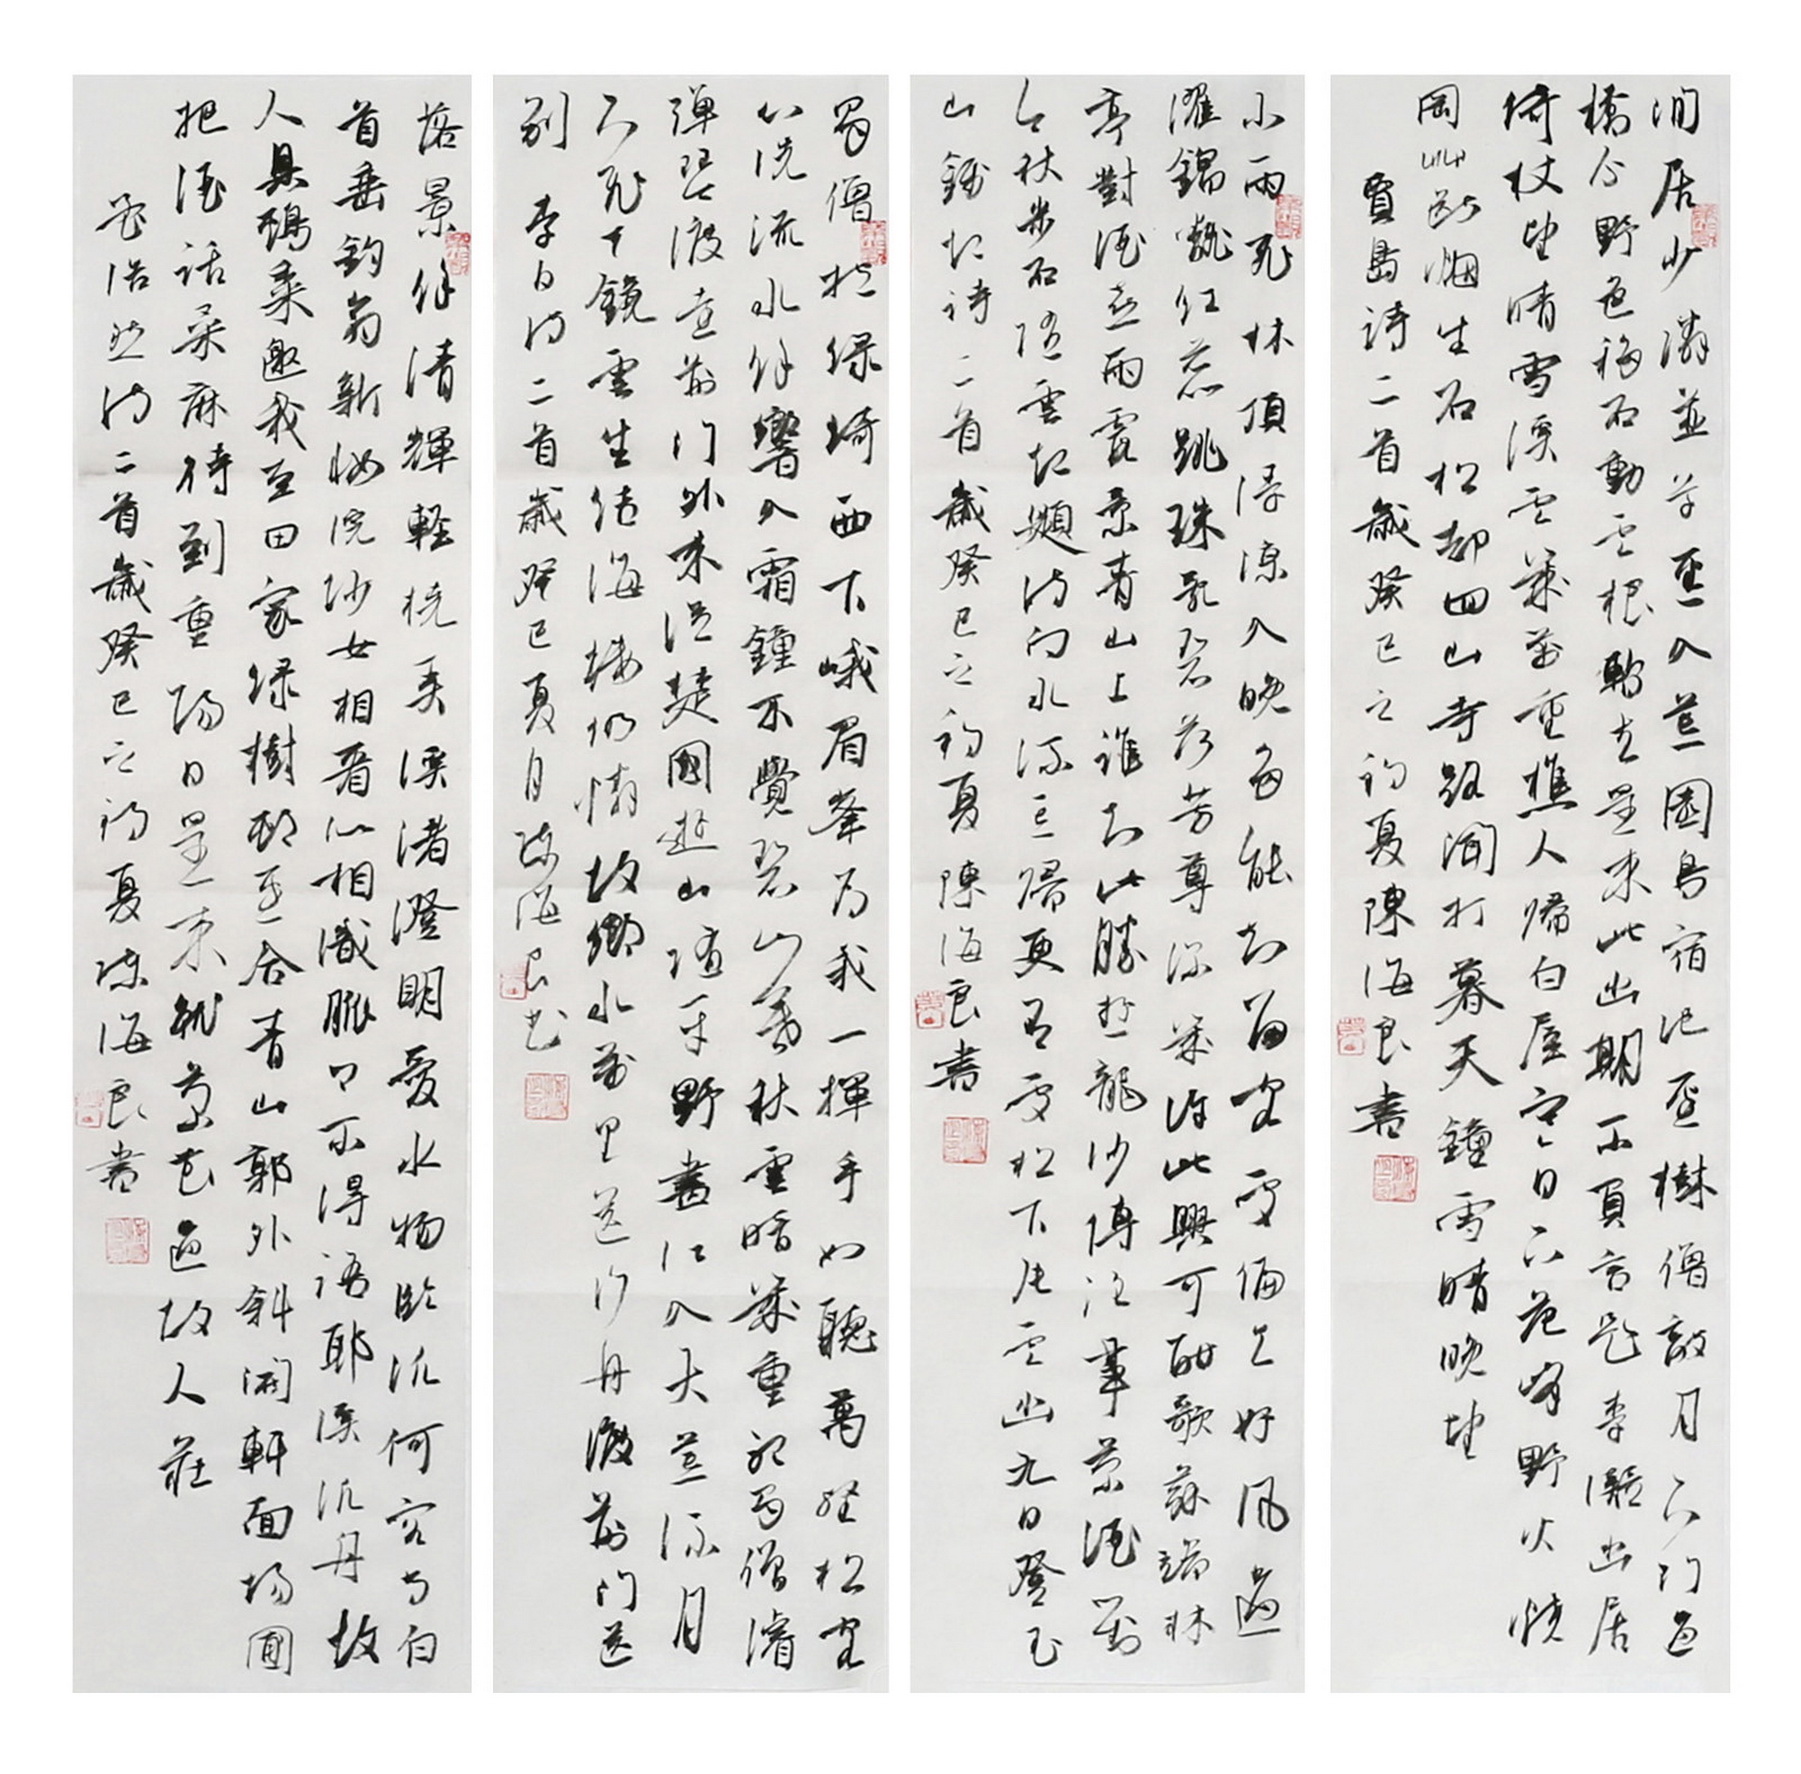 閒居少隣並草徑入荒園鳥宿池邊樹僧敲月下門過
橋分野色移石動雲根暫去還来此幽期不負言題李凝幽居
倚杖望晴雪溪雲幾萬重樵人歸白屋寒日下危峰野火燒
岡草斷烟生石松却回山寺路聞打暮天鐘雪晴晚望
賈島詩二首歲癸巳之初夏陳海良書
小雨飛林頂浮涼入晚多能知留客處偏与好風過
濯錦翻红蕊跳珠乱碧荷芳尊深幾許此興可酣歌蘇端林
亭對酒喜雨霞景青山上誰知此勝遊龍沙傳往事菊酒對
今秋步石隨雲起題詩向水流忘歸更有處松下片雲幽九日登玉
山錢起詩二首歲癸巳之初夏陳海良書
蜀僧抱绿綺西下峨眉峯为我一揮手如聽萬壑松客
心洗流水餘響入霜鐘不覺碧山暮秋雲暗幾重聽蜀僧濬
彈琴渡遠荆門外来從楚國遊山隨平野盡江入大荒流月
下飛天鏡雲生結海樓仍憐故鄉水萬里送行舟渡荆門送
别李白詩二首歲癸巳夏月陳海良书
落景餘清輝輕橈弄溪渚澄明愛水物臨泛何容与白
首垂釣翁新妝浣沙女相看似相識脈脈不得語耶溪泛舟故
人具雞黍邀我至田家绿樹村邊合青山郭外斜開軒面場圃
把酒話桑麻待到重陽日還来就菊花過故人莊
孟浩然詩二首歲癸巳之初夏陳海良書